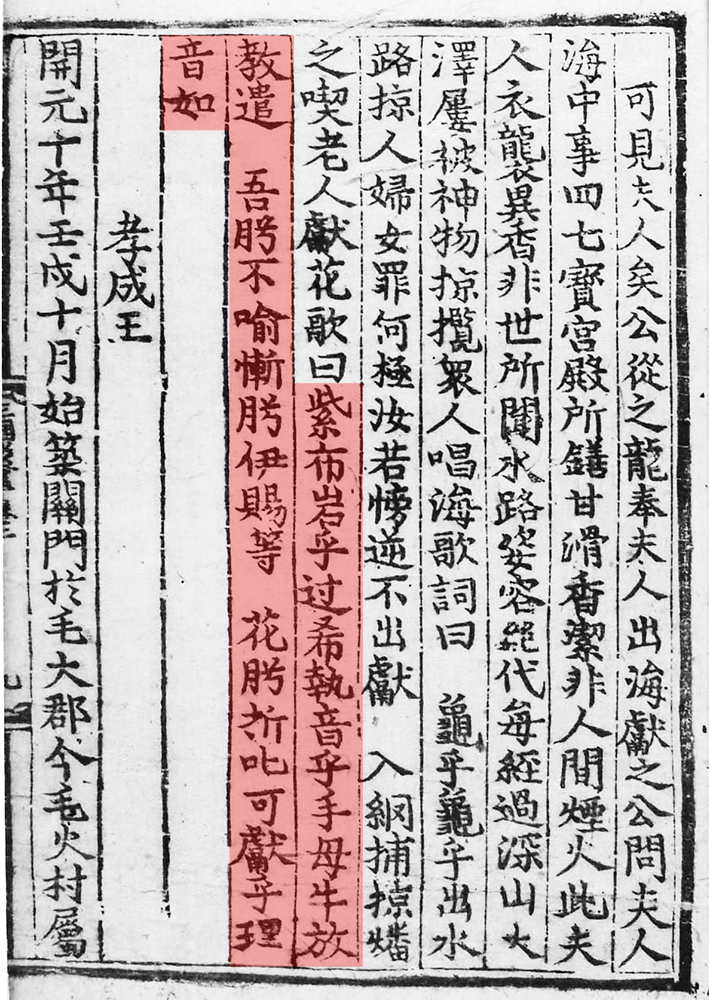 可見夫人矣公從之龍奉夫人出海獻之公問夫人
海中事曰七寶宮殿所饍甘滑香潔非人間煙火此夫
人衣襲異香非世所聞水路姿容絕代每經過深山大
澤屢被神物掠攬衆人唱海歌詞曰 龜乎龜乎出水
路掠人婦女罪何極汝若悖逆不出獻 入網捕掠燔
之喫老人獻花歌曰紫布岩乎过希執音乎手母牛放
教遣 吾肹不喻慚肹伊賜等 花肹折叱可獻乎理
音如
孝成王
開元十年壬戌十月始築關門於毛火郡今毛火村屬